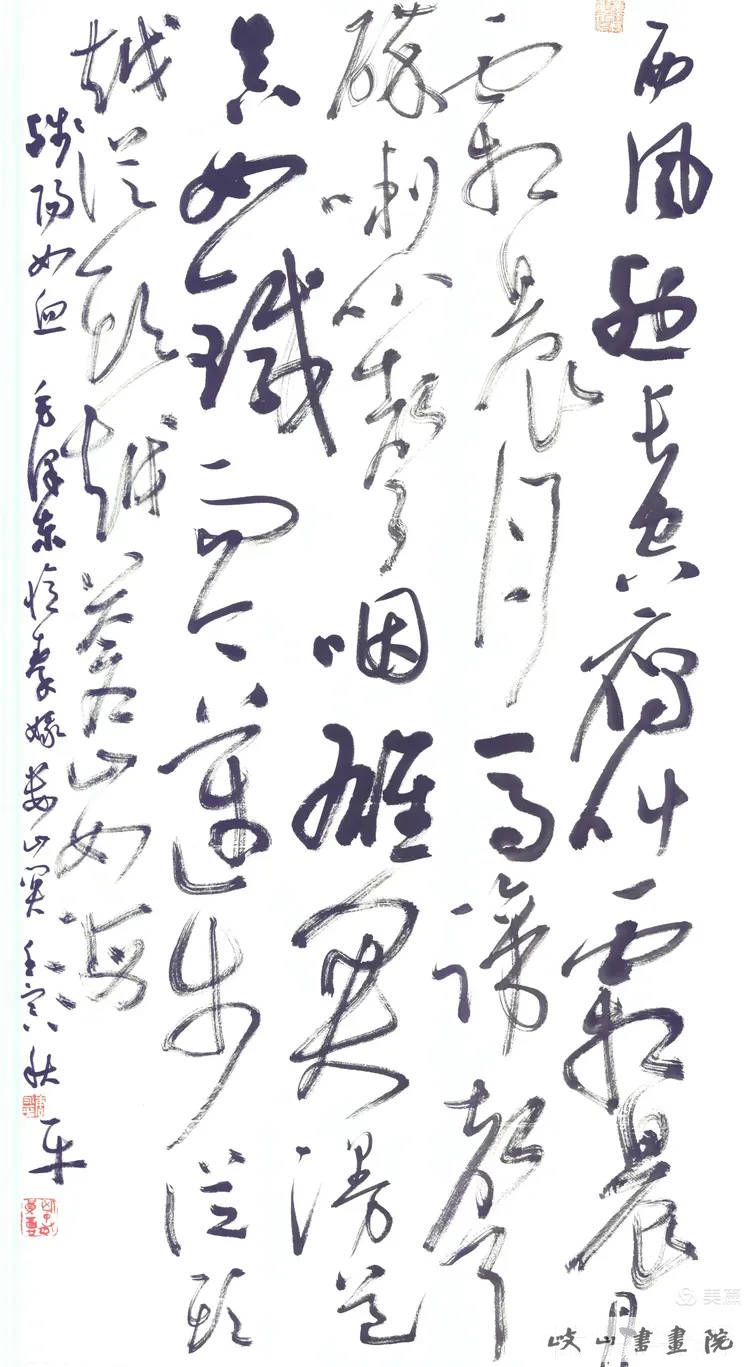 西风烈长空雁叫霜晨月
霜晨月马蹄声
碎喇叭声咽雄关漫道
真如铁而今迈步从头
越从头越苍山如海
残阳如血 毛泽东忆秦娥娄山关 壬寅秋 平
美篇
岐山書畫院